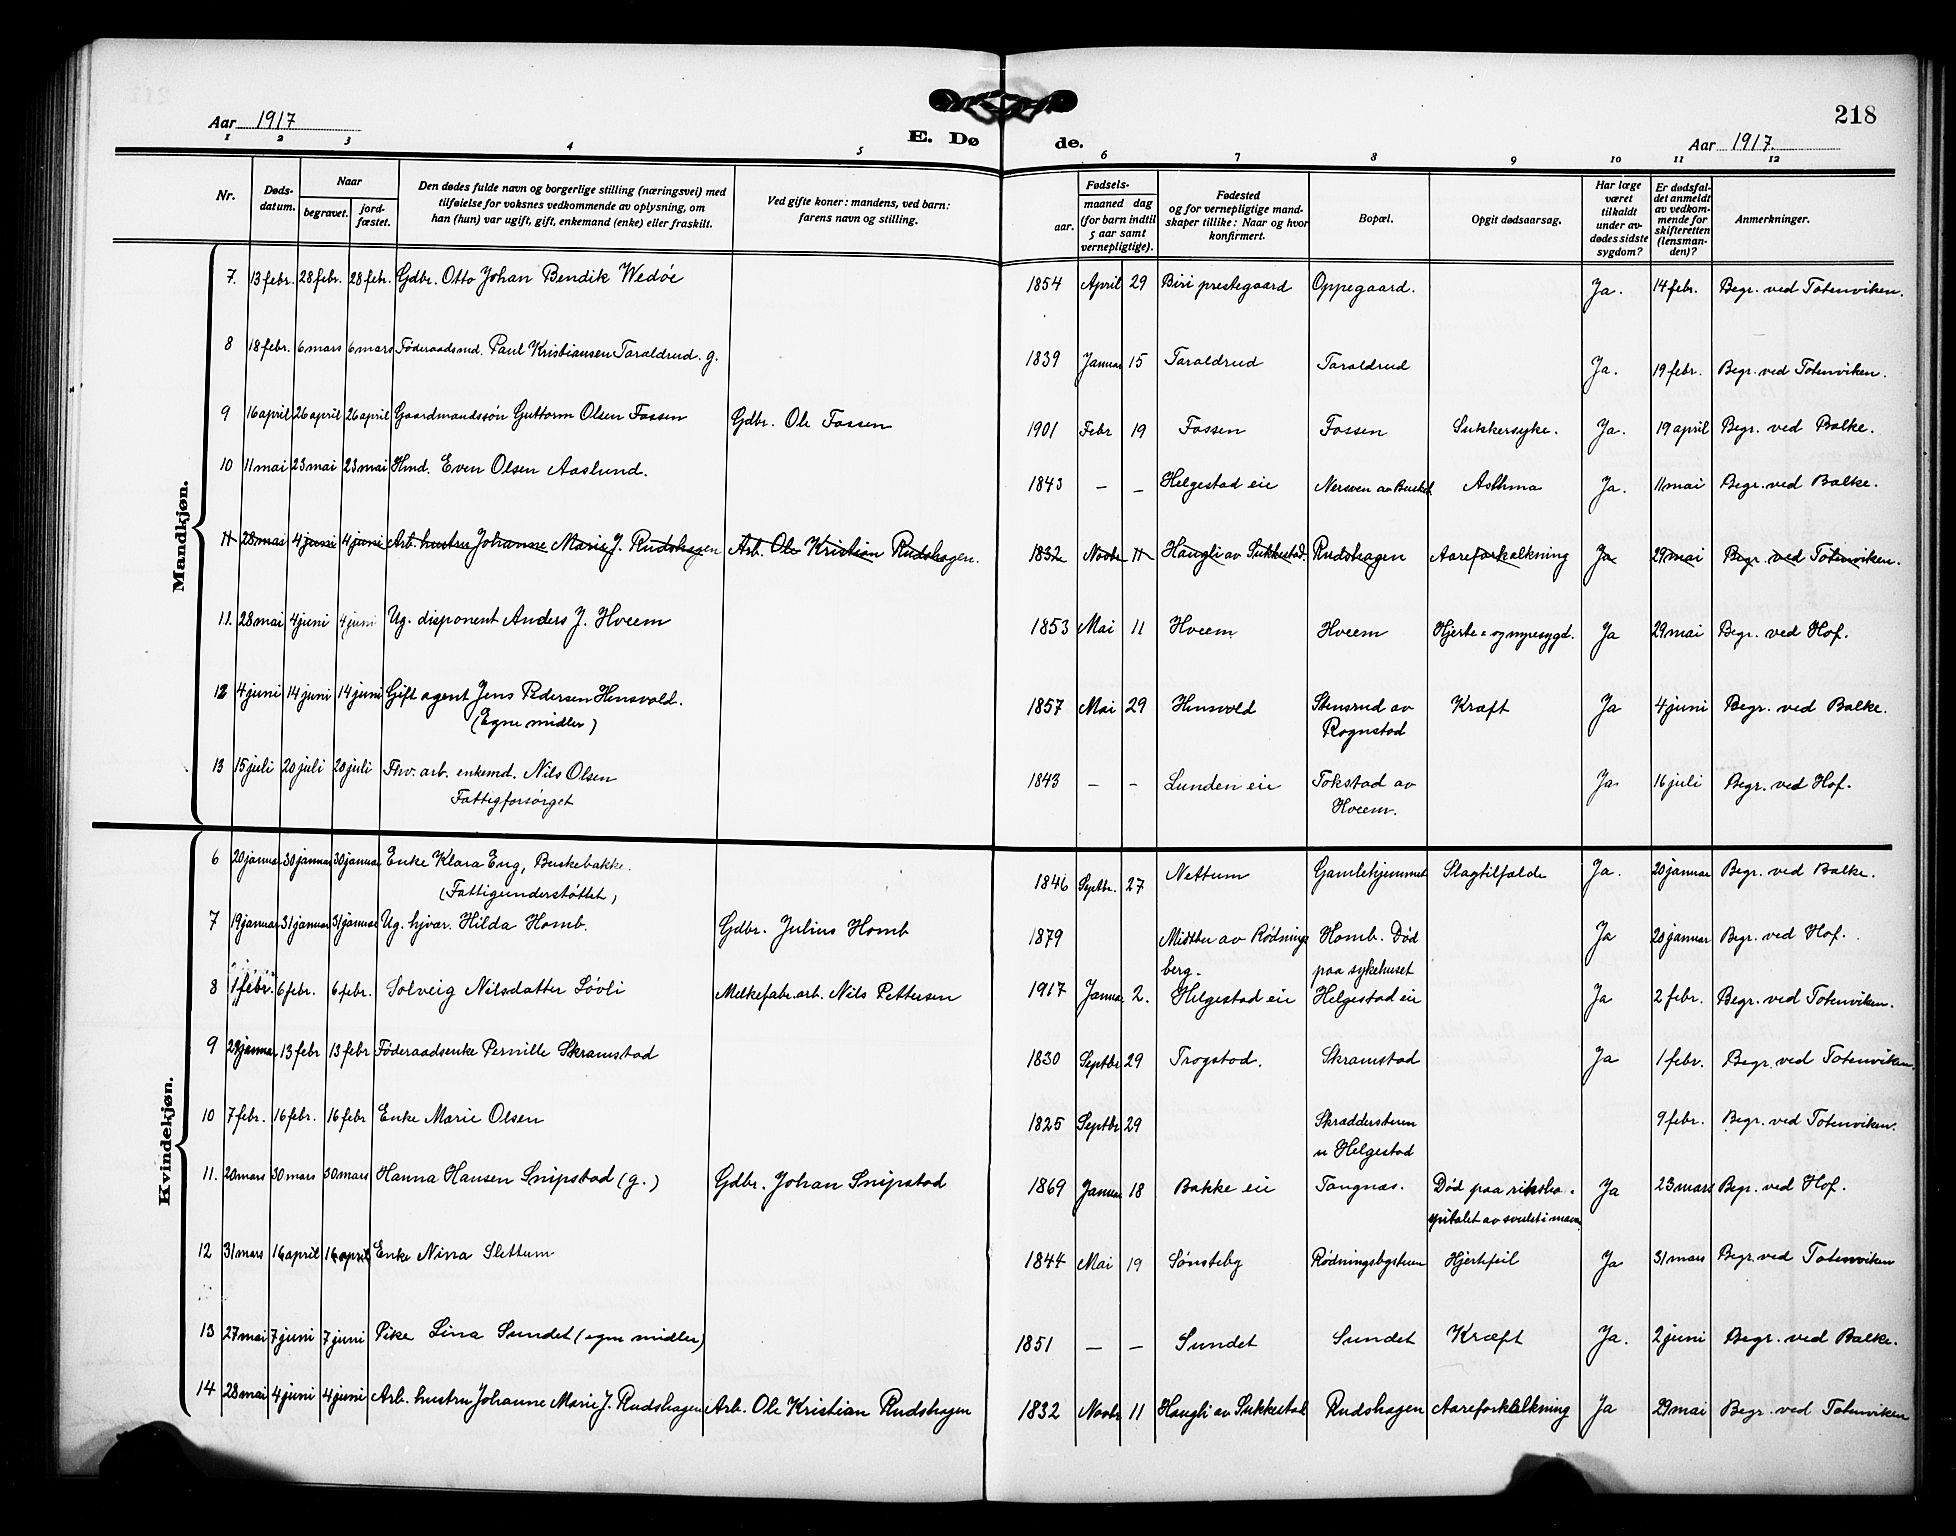 218
Aar 1917
E. Døde.
Aar 1917
1 2 3 4 5 6 7 8 9 10 11 12
Nr.
Døds-
datum.
Naar
begravet.
jord-
fæstet.
Den dødes fulde navn og borgerlige stilling (næringsvei) med
tilføielse for voksnes vedkommende av oplysning, om
han (hun) var ugift, gift, enkemand (enke) eller fraskilt.
Ved gifte koner: mandens, ved barn:
farens navn og stilling.
Fødsels-
aar.
maaned dag
(for barn indtil
5 aar samt
vernepligtige).
Fødested
og for vernepligtige mand-
skaper tillike: Naar og hvor
konfirmert.
Bopæl.
Opgit dødsaarsag.
Har læge
været
tilkaldt
under av-
dødes sidste
sygdom?
Er dødsfal-
det anmeldt
av vedkom-
mende for
skifteretten
(lensman-
den)?
Anmerkninger.
Mandkjøn.
7. 13 febr. 28 febr. 28 febr. Gdbr. Otto Johan Bendik Wedøe 1854 April 29 Biri prestegaard Oppegaard. Ja. 14 febr. Begr. ved Totenviken.
8 18 febr. 6 mars 6 mars Føderaadsmd. Paul Kristiansen Taraldrud. g. 1839 Januar 15 Taraldrud Taraldrud Ja. 19 febr. Begr. ved Totenviken.
9 16 april 26 april 26 april Gaardmandssøn Guttorm Olsen Fossen Gdbr. Ole Fossen 1901 Febr 19 Fossen Fossen Sukkersyke. Ja. 19 april Begr. ved Balke.
10 11 mai 23 mai 23 mai Hmd. Even Olsen Aaslund. 1843 – – Helgestad eie Nersven av Ja. Asthma 11 mai Begr. ved Balke.
11 28 mai 4 juni 4 juni Arb. hustru Johanne Marie J. Rudshagen Arb. Ole Kristian Rudshagen. 1832 Novbr 11 Haugli av Sukkestad. Rudshagen Aareforkalkning Ja 29 mai Begr. ved Totenviken.
11. 28 mai 4 juni 4 juni Ug. disponent Anders J. Hveem 1853 Mai 11 Hveem Hveem Hjerte- og nyresygd. Ja 29 mai Begr. ved Hof.
12 4 juni 14 juni 14 juni Gift agent Jens Pedersen Hensvold. 1857 Mai 29 Hensvold Stensrud av Kræft Ja 4 juni Begr. ved Balke.
(Egne midler) Rognstad
13 15 juli 20 juli 20 juli Fhv. arb. enkemd. Nils Olsen 1843 – – Lunden eie Tokstad av Ja 16 juli Begr. ved Hof.
Fattigforsørget Hveem.
Kvindekjøn.
6 20 januar 30 januar 30 januar Enke Klara Eng, Buskebakke. 1846 Septbr. 27 Nettum Gamlehjemmet Slagtilfælde Ja. 20 januar Begr. ved Balke.
(Fattigunderstøttet)
7 19 januar 31 januar 31 januar Ug. hjvær. Hilda Homb. Gdbr. Julius Homb 1879 Midtbø av Rødnings- Homb. Død Ja 20 januar Begr. ved Hof.
berg. paa sykehuset
8 1 febr. 6 febr. 6 febr. Solveig Nilsdatter Løvli Melkefabr.arb. Nils Pettersen 1917 Januar 2. Helgestad eie Helgestad eie Ja 2 febr. Begr. ved Totenviken.
9 januar 13 febr 13 febr Føderaadsenke Pernille Skramstad 1830 Septbr 29 Trogstad. Skramstad Ja 1 febr. Begr. ved Totenviken.
10 7 febr. 16 febr. 16 febr Enke Marie Olsen 1825 Septbr 29 Skræddersteuen 9 febr. Begr. ved Totenviken.
u Helgestad
11. 20 mars 30 mars 30 mars Hanna Hansen Snipstad (g.) Gdbr. Johan Snipstad 1869 Januar 18 Bakke eie Tangnæs. Død paa riksho- Ja 23 mars Begr. ved Hof.
spitalet av svulst i maven
12 31 mars 16 april 16 april Enke Nina Slettum 1844 Mai 19 Sønsteby Rødningsbysteuen Hjertefeil Ja 31 mars Begr. ved Totenviken
13 27 mai 7 juni 7 juni Pike Lina Sundet (egne midler) 1851 – – Sundet Sundet Kræft Ja. 2 juni Begr. ved Balke.
14 28 mai 4 juni 4 juni Arb. hustru Johanne Marie J. Rudshagen Arb. Ole Kristian Rudshagen 1832 Novbr 11 Haugli av Sukkestad Rudshagen Aareforkalkning Ja 29 mai Begr. ved Totenviken